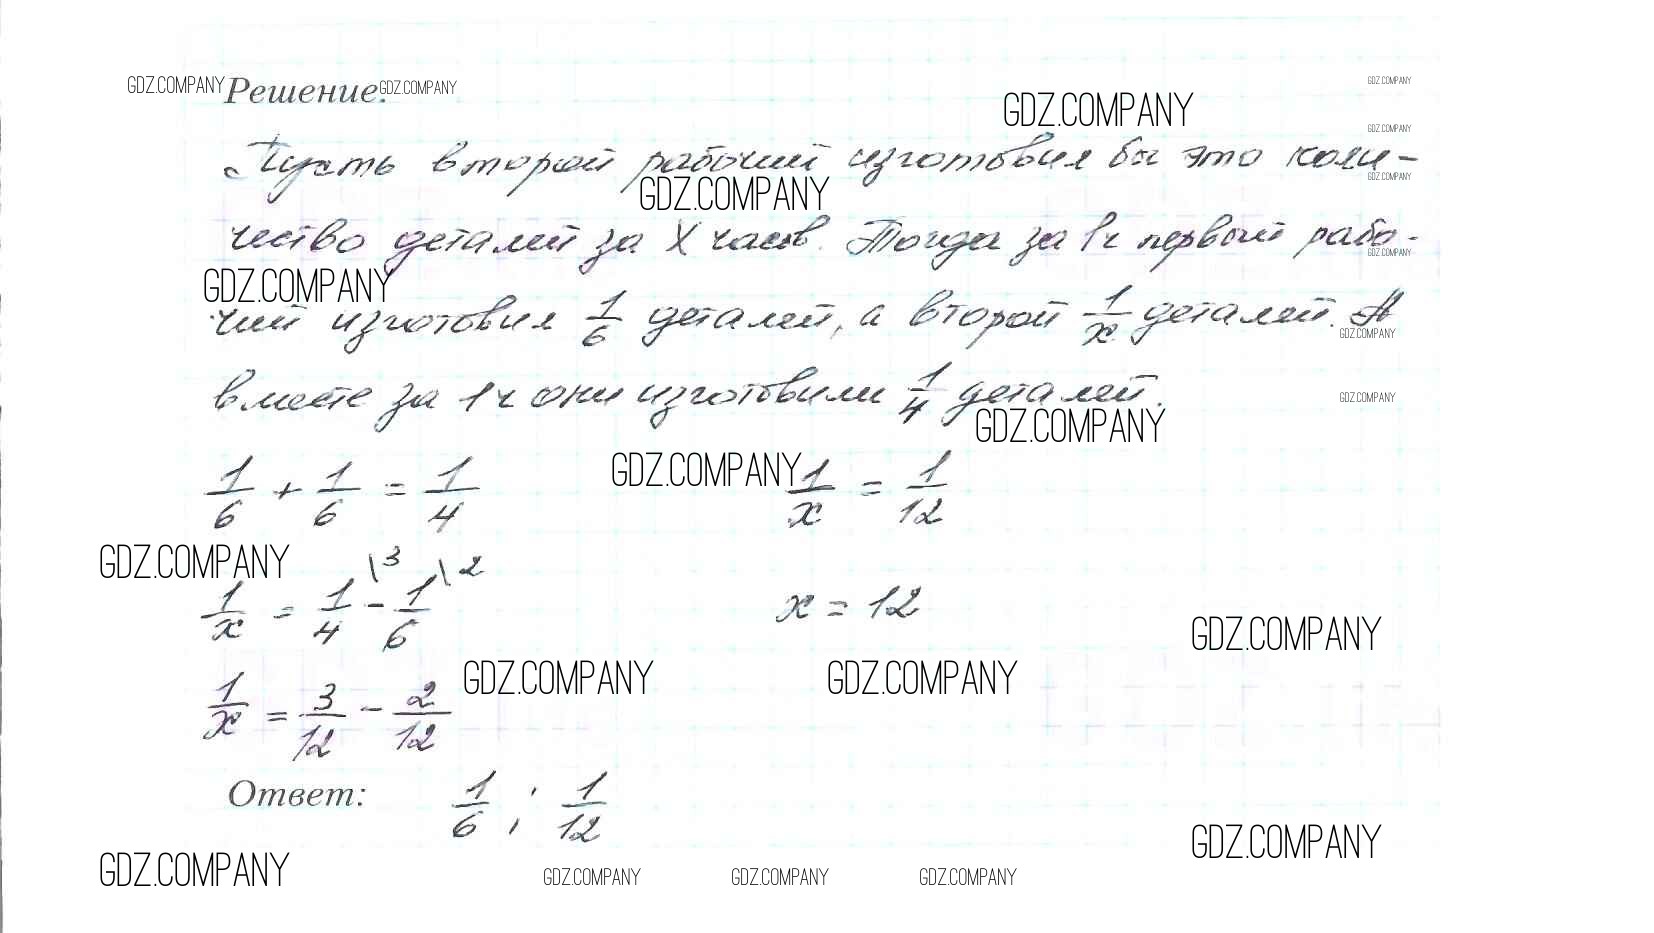 GDZ.COMPANY Решение. GDZ.COMPANY GDZ.COMPANY
GDZ.COMPANY
GDZ.COMPANY
Пусть второй рабочий изготовил бы это коли-
GDZ.COMPANY GDZ.COMPANY
чество деталей за X часов. Тогда за 1ч первый рабо-
GDZ.COMPANY GDZ.COMPANY
чий изготовил 1/6 деталей, а второй 1/x деталей. А
GDZ.COMPANY
вместе за 1ч они изготовили 1/4 деталей.
GDZ.COMPANY
GDZ.COMPANY
1/6 + 1/6 = 1/4 GDZ.COMPANY 1/x = 1/12
GDZ.COMPANY
1/x = 1/4 \3 - 1/6 \2 x = 12
GDZ.COMPANY
GDZ.COMPANY GDZ.COMPANY
1/x = 3/12 - 2/12
Ответ: 1/6 ; 1/12
GDZ.COMPANY
GDZ.COMPANY GDZ.COMPANY GDZ.COMPANY GDZ.COMPANY